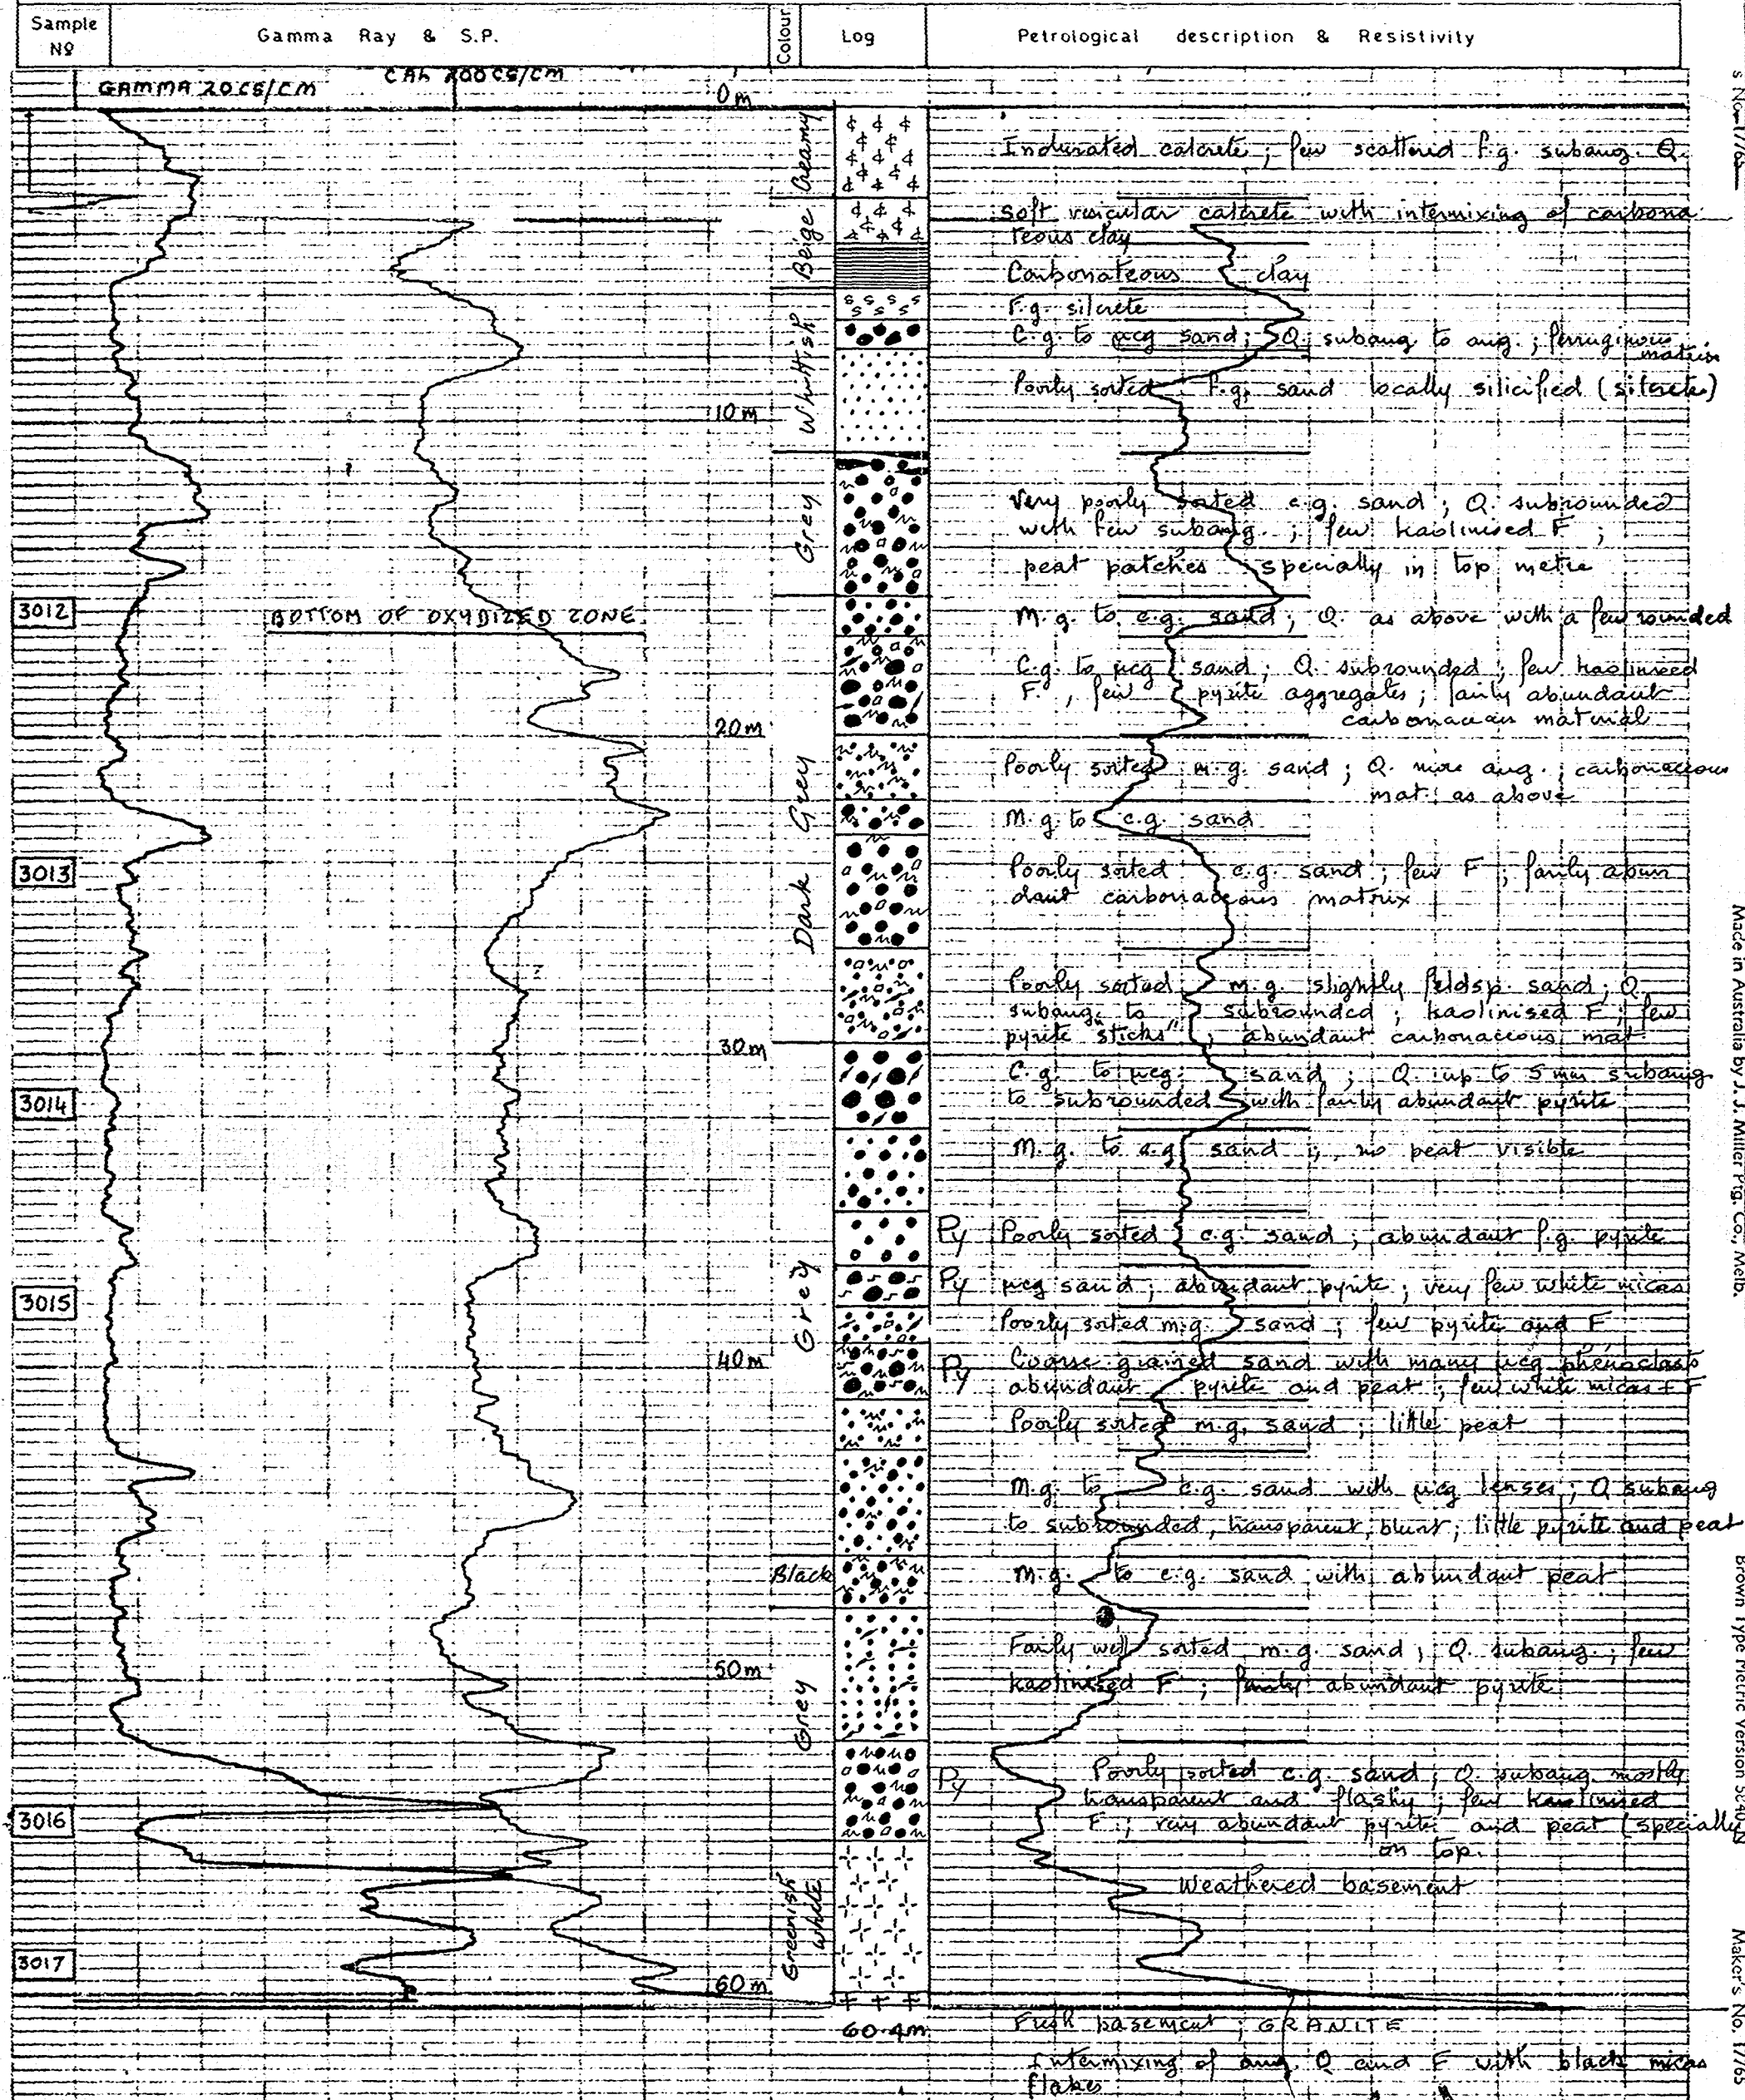 Sample Nº
Gamma Ray & S.P.
Colour
Log
Petrological description & Resistivity
GAMMA 20 CS/CM
CAL 200 CS/CM
0m
Creamy
Indurated calcrete; few scattered f.g. subang. Q.
Beige
Soft vesicular calcrete with intermixing of carbona
teous clay
Carbonateous clay
Whitish
S S S S
S S S
F.g. silcrete
C.g. to µcg sand; Q. subang to ang.; ferruginous
matrix
Poorly sorted f.g. sand locally silicified (silcrete)
10m
Grey
Very poorly sorted c.g. sand; Q. subrounded
with few subang.; few kaolinised F;
peat patches specially in top metre
3012
BOTTOM OF OXYDIZED ZONE
M.g. to c.g. sand; Q. as above with a few rounded
C.g. to µcg sand; Q. subrounded; few kaolinised
F, few pyrite aggregates; fairly abundant
carbonaceous material
20m
Dark Grey
Poorly sorted m.g. sand; Q. more ang.; carbonaceous
mat. as above
M.g. to c.g. sand
3013
Poorly sorted c.g. sand; few F; fairly abun
dant carbonaceous matrix
?
Poorly sorted m.g. slightly feldsp. sand; Q.
subang. to subrounded; kaolinised F; few
pyrite "sticks"; abundant carbonaceous mat.
30m
Grey
C.g. to µcg. sand; Q. up to 5 mm subang
3014
to subrounded with fairly abundant pyrite
M.g. to c.g. sand; no peat visible
Py
Poorly sorted c.g. sand; abundant f.g. pyrite
Py
µcg sand; abundant pyrite; very few white micas
3015
Poorly sorted m.g. sand; few pyrite and F
40m
Py
Coarse grained sand with many µcg phenoclasts
abundant pyrite and peat; few white micas + F
Poorly sorted m.g. sand; little peat
M.g. to c.g. sand with µcg lenses; Q subang
to subrounded, transparent, blunt; little pyrite and peat
Black
M.g. to c.g. sand with abundant peat
Grey
Fairly well sorted m.g. sand; Q. subang.; few
50m
kaolinised F; fairly abundant pyrite
Py
Poorly sorted c.g. sand; Q. subang mostly
transparent and flashy; few kaolinised
3016
F.; very abundant pyrite and peat (specially
on top.
Greenish
White
Weathered basement
3017
60m
60.4m
Fresh basement; GRANITE
Intermixing of ang. Q and F with black micas
flakes
s No. 1776
Made in Australia by J. J. Miller Ptg. Co., Melb.
Brown Type Metric Version
Maker's No. 17765